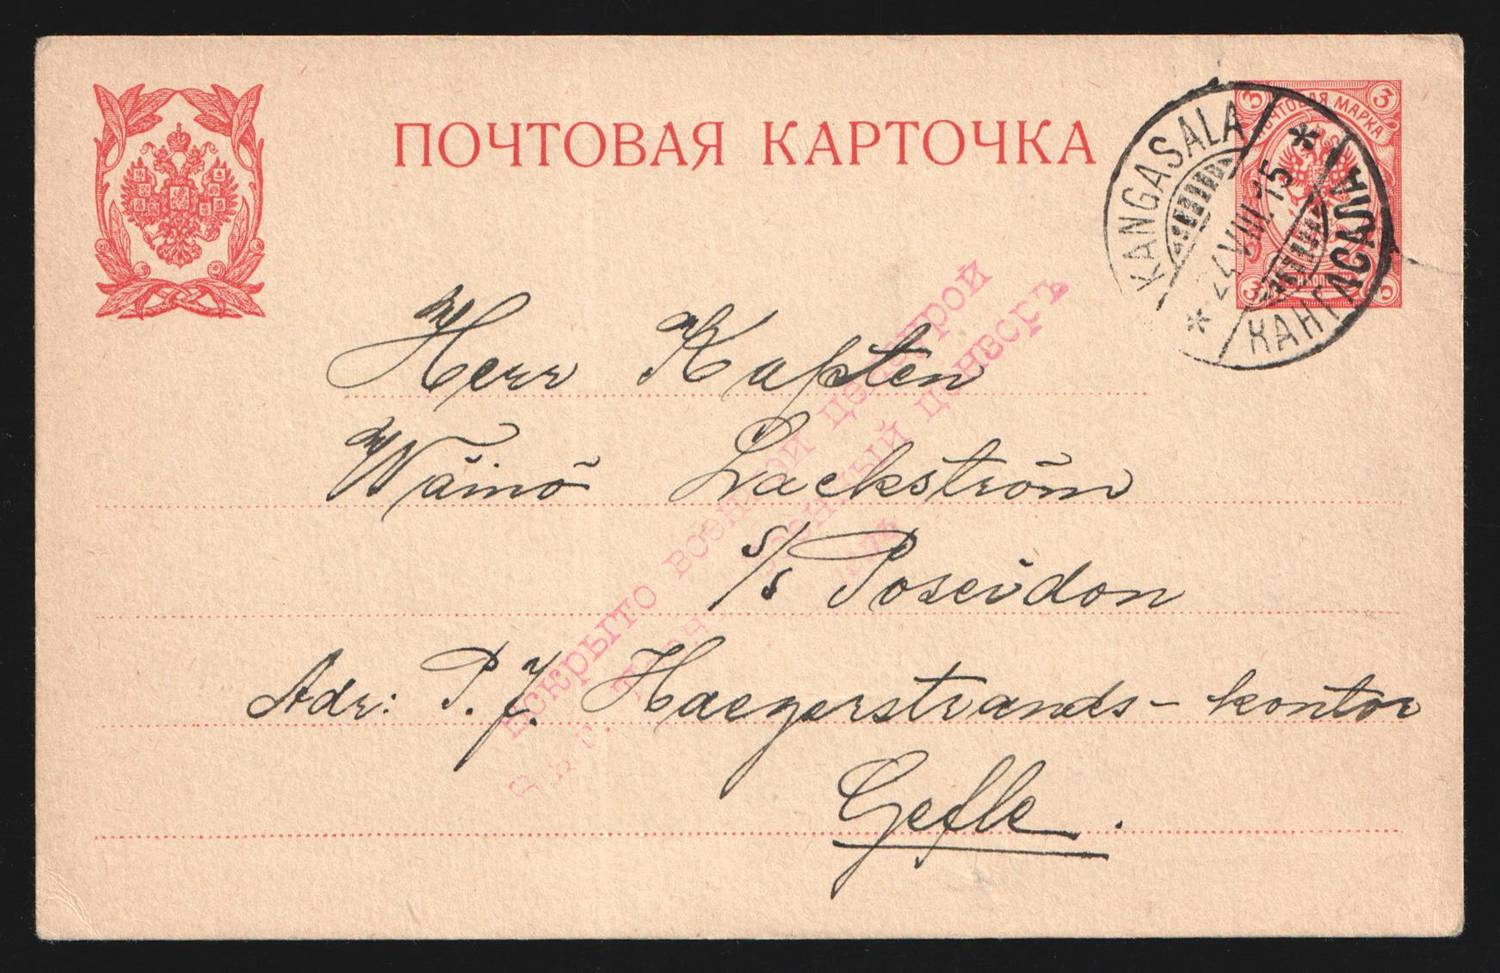 ПОЧТОВАЯ КАРТОЧКА
3 ПОЧТОВАЯ МАРКА 3
KANGASALA
* 24.VIII.15 *
КАНГАСАЛА
Herr Kapten
Wäinö Lackström
s/s Poseidon
Adr: P. J. Haegerstrands-kontor
Gefle.
Вскрыто военной цензурой
военный цензоръ